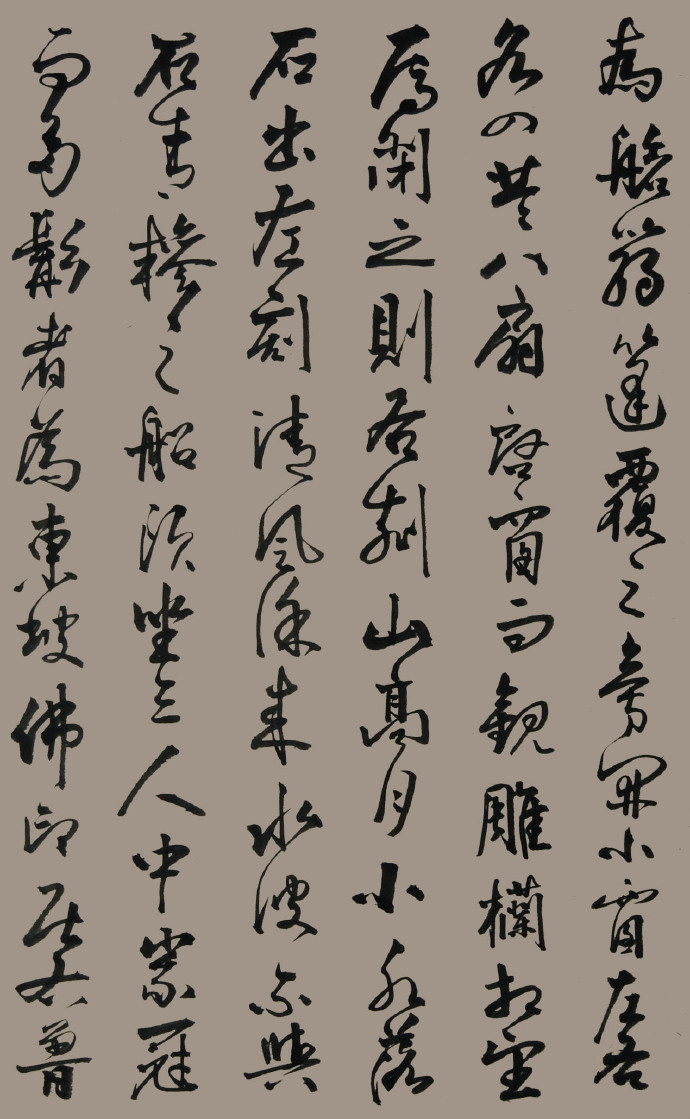 為艙篛篷覆之旁開小窗左右
各四共八扇啓窗而觀雕欄相望
焉閉之則右刻山高月小水落
石出左刻清風徐來水波不興
石青糝之船頭坐三人中峩冠
而多髯者為東坡佛印居右魯